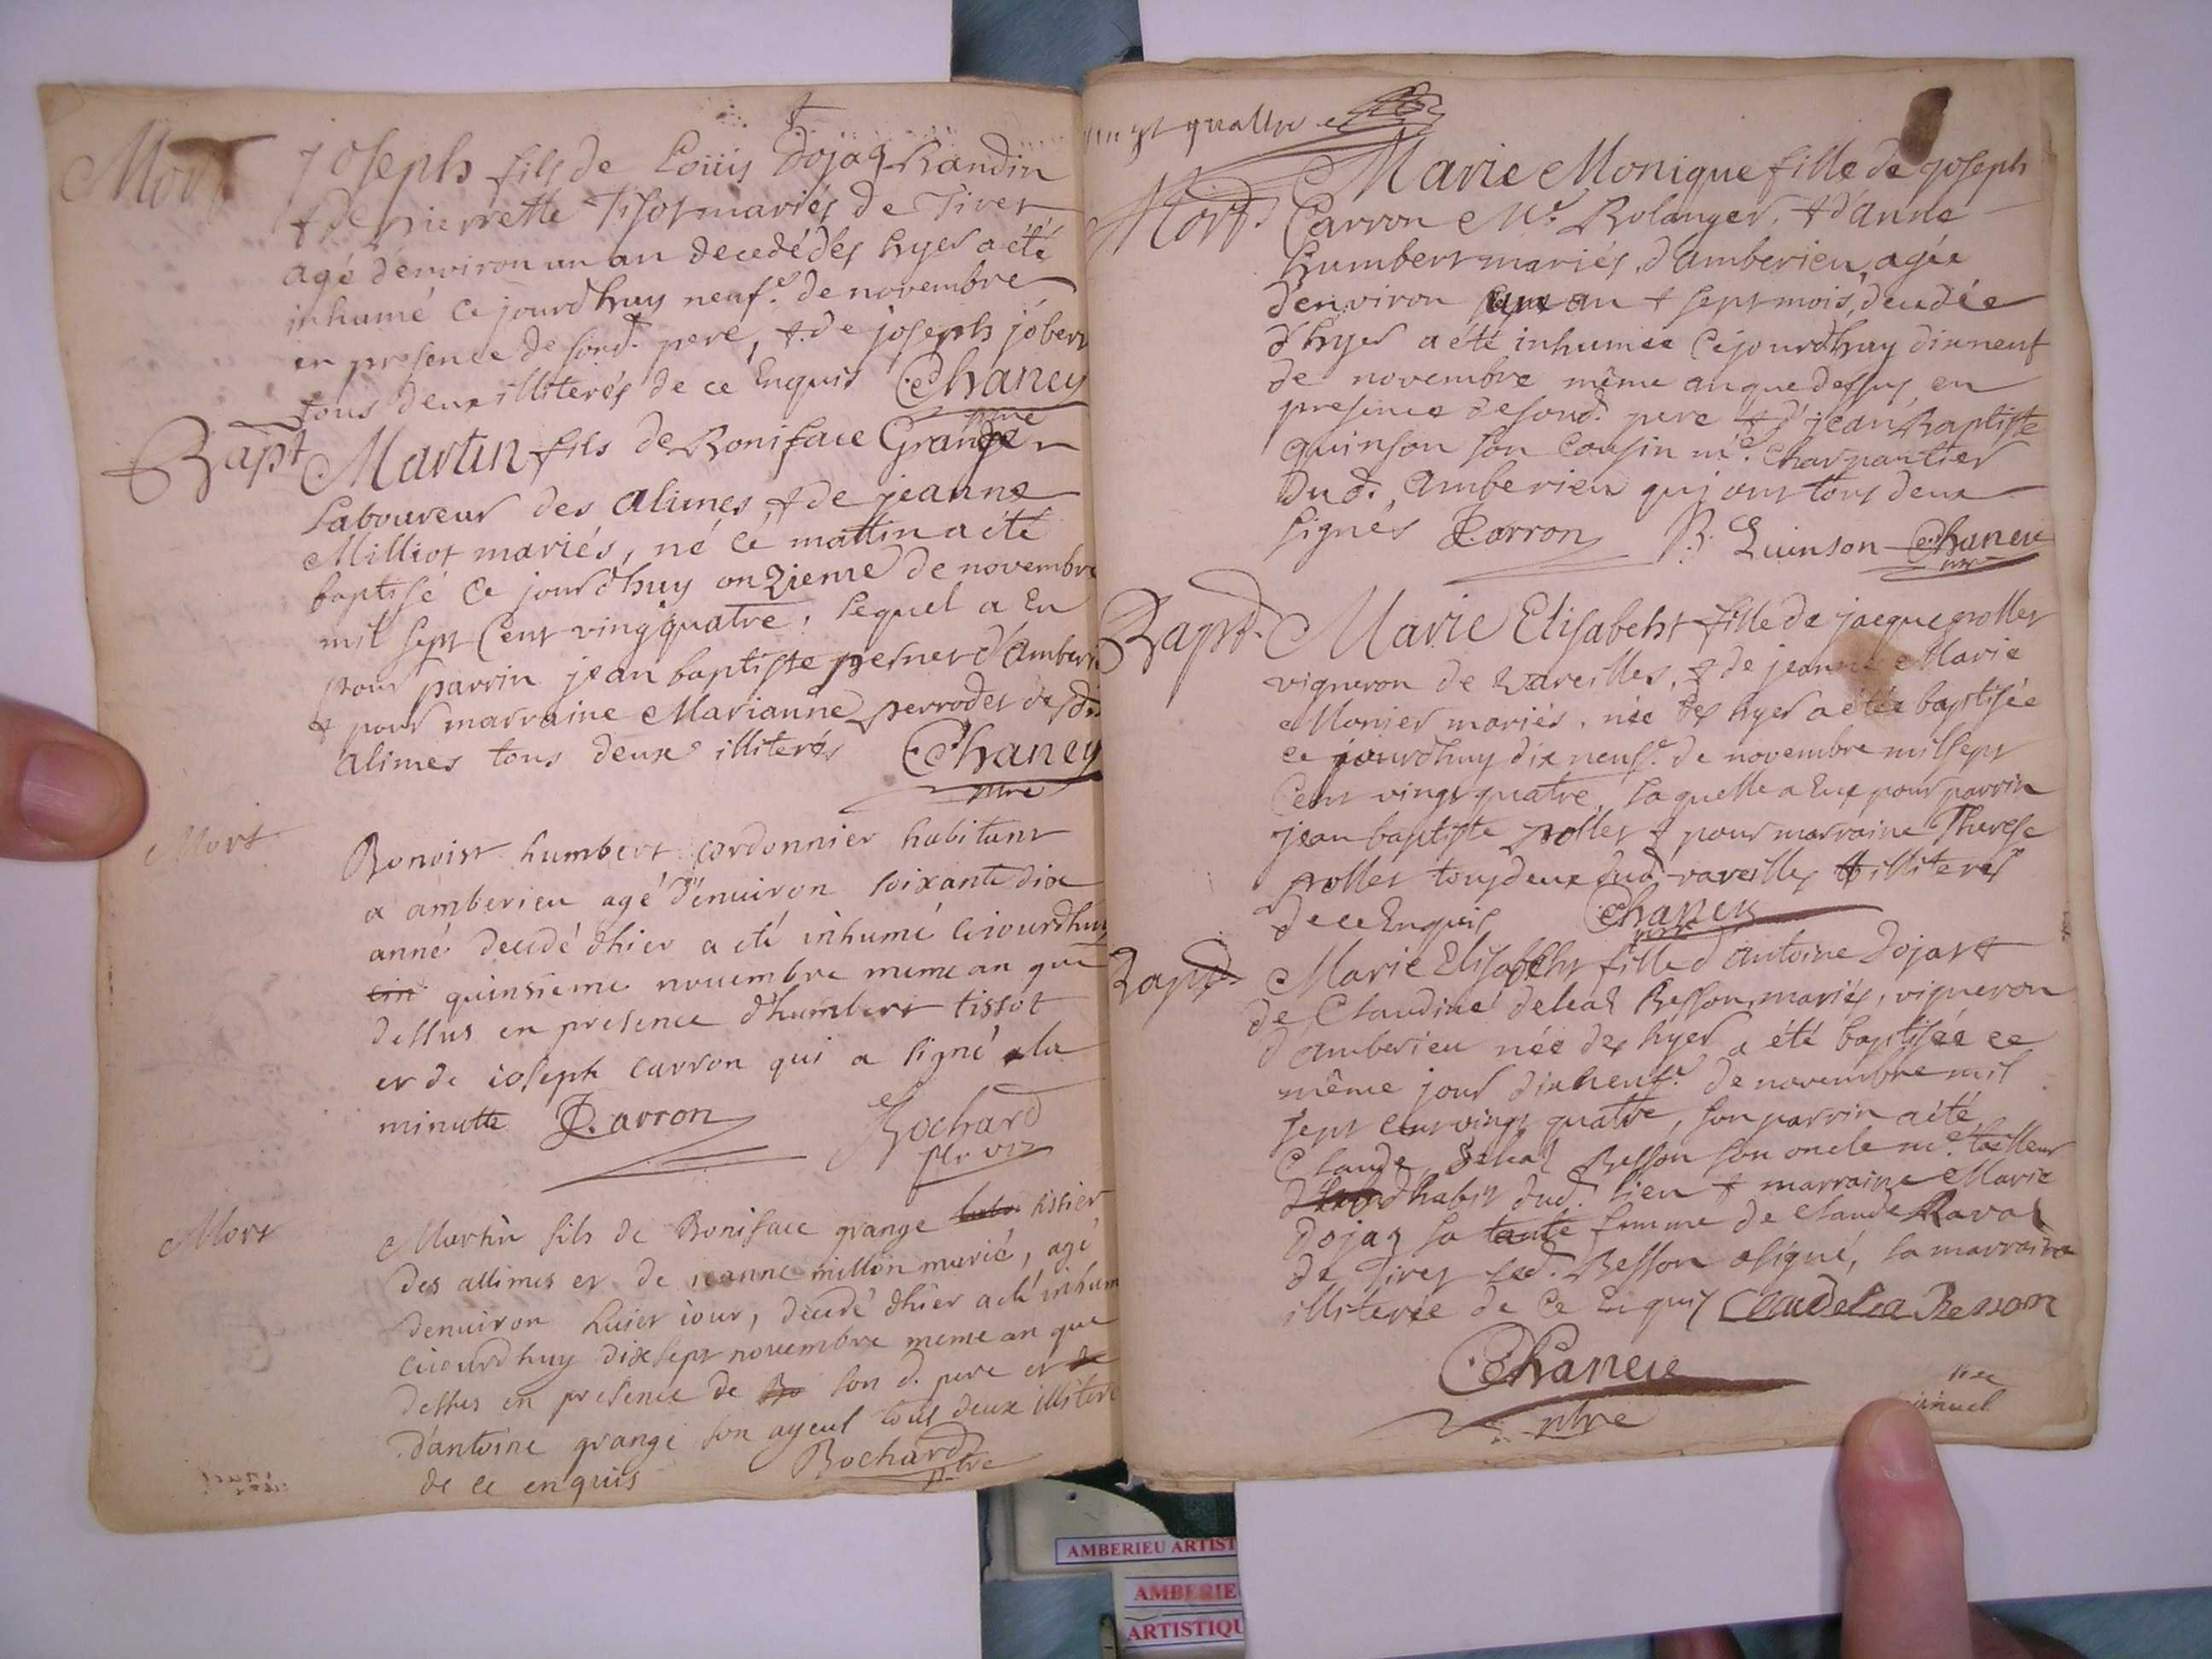 Mort
Joseph fils de Loüis Dojaz-Bandin
& de pierrette Tisot mariés de Tiret
agé d'environ un an decedé dès hyer a été
inhumé ce jourdhuy neuf.e de novembre
en presence de sond. pere, & de joseph jobert
tous deux illiterés de ce Enquis Chaney
ptre
Bapt
Martin fils de Boniface Grange
Laboureur des alimes, & de jeanne
Milliot mariés, né ce mattin a été
baptisé ce jourdhuy onzieme de novembre
mil sept cent vingquatre, lequel a Eu
pour parrin jean baptiste pernet d'Amberi
& pour marraine Marianne perrodet desd.
alimes tous deux illiterés Chaney
ptre
Mort
Benoist humbert cordonnier habitant
a amberieu agé d'enuiron soixante dix
anné decedé dhier a eté inhumé ceiourdhuy
cin quinsieme nouembre meme an que
dessus en presence d'humbert tissot
et de ioseph carron qui a signé a la
minutte J. Carron Bochard
ptr vic
Mort
Martin fils de Boniface grange tissier
des allimes et de ieanne millon marié, agé
denuiron huict iour, decedé dhier a eté inhum
ceiourdhuy dix sept nouembre meme an que
dessus en presence de son d. pere et de
d'antoine grange son ayeul tous deux illiteré
de ce enquis Bochard
ptre
vingt quattre
Mort.
Marie Monique fille de joseph
Carron M.e Bolanger, & d'anne
humbert mariés d'amberieu, agée
d'environ un an & sept mois, decedée
d'hyer a été inhumée cejourdhuy dixneuf
de novembre même an que dessus, en
presence de sond. pere & d'jean Baptiste
quinson son cousin m.e charpantier
dud. Amberieu qui ont tous deux
signés J. Carron B. Quinson Chaney
ptre
Bapt.
Marie Elisabeht fille de jacque grollet
vigneron de vareilles, & de jeanne Marie
Monier mariés, née des hyer a étée baptisée
ce jourdhuy dix neuf.e de novembre mil sept
cent vingt quatre, laquelle a Eu pour parrin
jean baptiste grollet & pour marraine Therese
grollet tous deux dud. vareilles & illiterés
de ce Enquis Chaney
ptre
Bapt.
Marie Elisabeht fille d'antoine Dojat &
de Claudine deleaz Besson, mariés, vigneron
d'amberieu née des hyer a été baptisée ce
même jour dixneuf.e de novembre mil
sept cent vingt quatre, son parrin a été
Claude, deleaz Besson son oncle m.e tallieur
d'habit dud. lieu & marraine Marie
Dojaz sa tante femme de claude Ravat
de Tiret led. Besson a signé, la marraine
illiterée de ce Enquis Claude Lea Besson
Chaney
ptre
AMBERIEU ARTIST
AMBERIE
ARTISTIQU